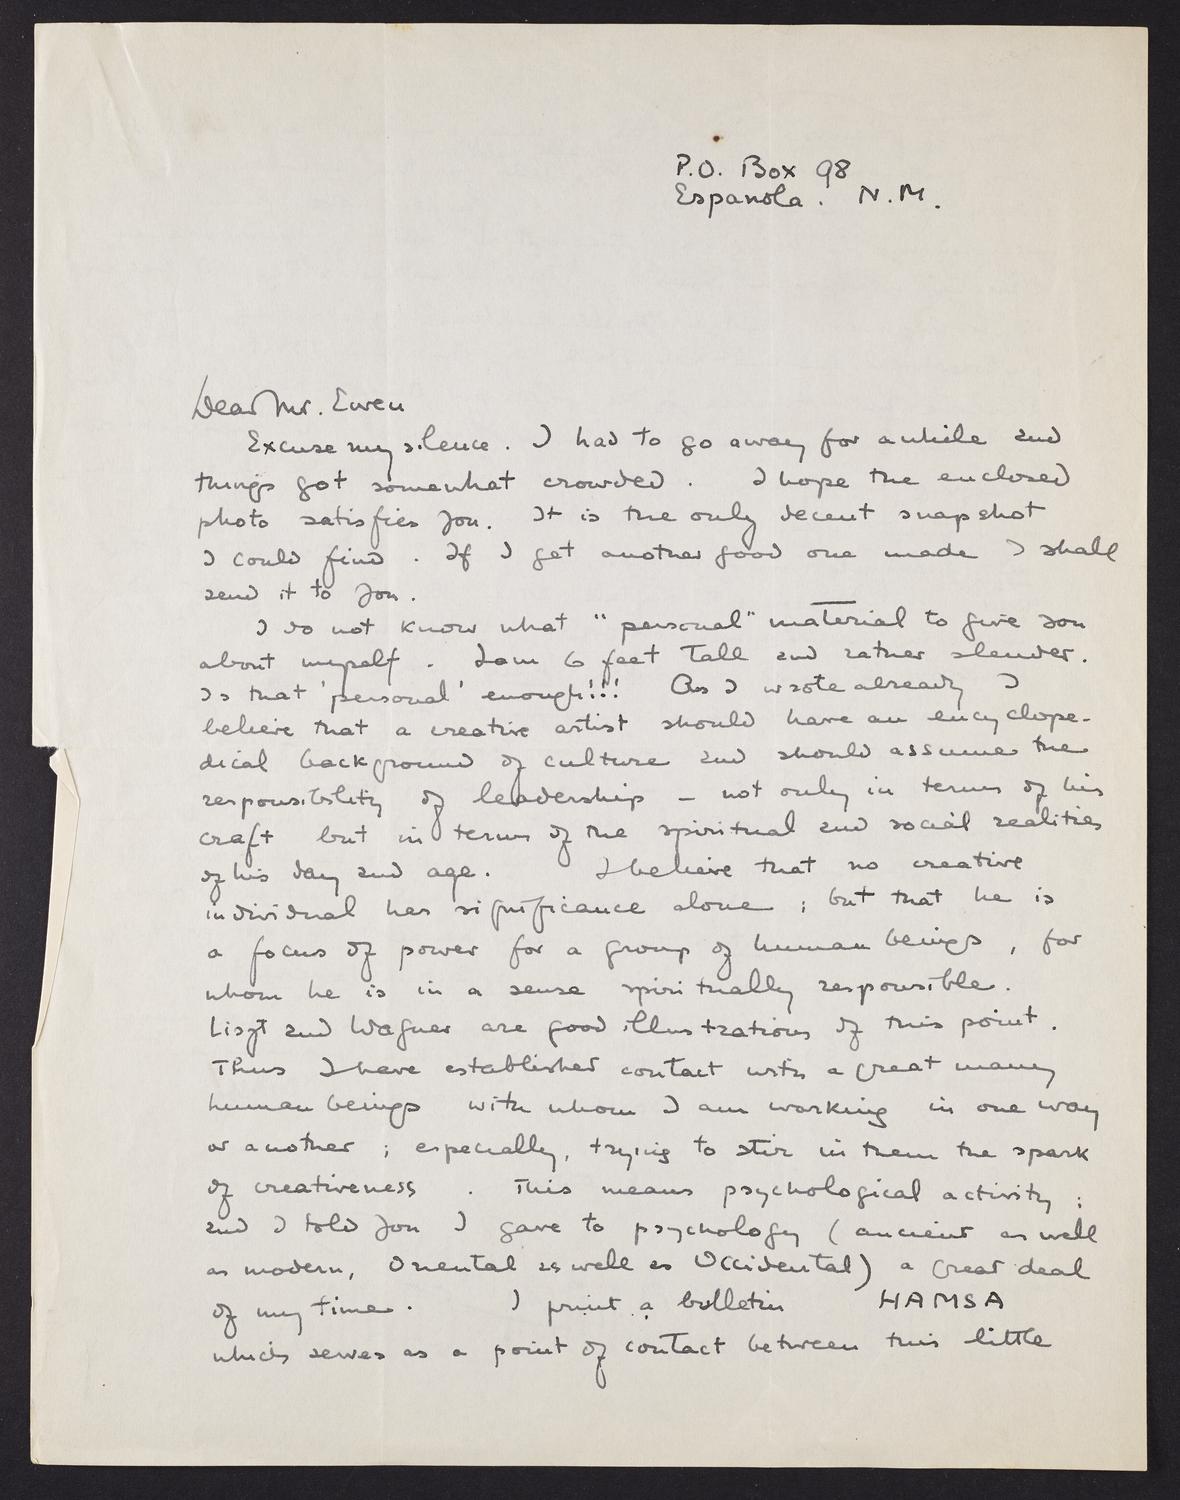 P.O. Box 98
Espanola. N.M.
Dear Mr. Ewen
Excuse my silence. I had to go away for awhile and
things got somewhat crowded. I hope the enclosed
photo satisfies you. It is the only decent snapshot
I could find. If I get another good one made I shall
send it to you.
I do not know what "personal" material to give you
about myself. I am 6 feet tall and rather slender.
Is that 'personal' enough!!! As I wrote already I
believe that a creative artist should have an encyclope-
dical background of culture and should assume the
responsibility of leadership – not only in terms of his
craft but in terms of the spiritual and social realities
of his day and age. I believe that no creative
individual has significance alone; but that he is
a focus of power for a group of human beings, for
whom he is in a sense spiritually responsible.
Liszt and Wagner are good illustrations of this point.
Thus I have established contact with a great many
human beings with whom I am working in one way
or another; especially, trying to stir in them the spark
of creativeness. This means psychological activity;
and I told you I gave to psychology (ancient as well
as modern, Oriental as well as Occidental) a great deal
of my time. I print a bulletin HAMSA
which serves as a point of contact between this little